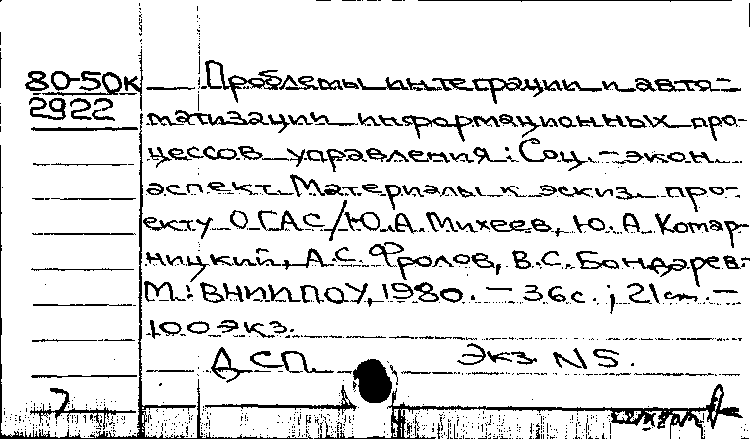 80-50к
2922
Проблемы интеграции и авто-
матизации информационных про-
цессов управления: Соц.-экон.
аспект. Материалы к эскиз. про-
екту ОГАС/Ю.А.Михеев, Ю.А Комар-
ницкий, А.С. Фролов, В.С. Бондарев.-
М.: ВНИИПОУ, 1980. - 36с.; 21см. -
100экз.
ДСП. Экз. N5.
7